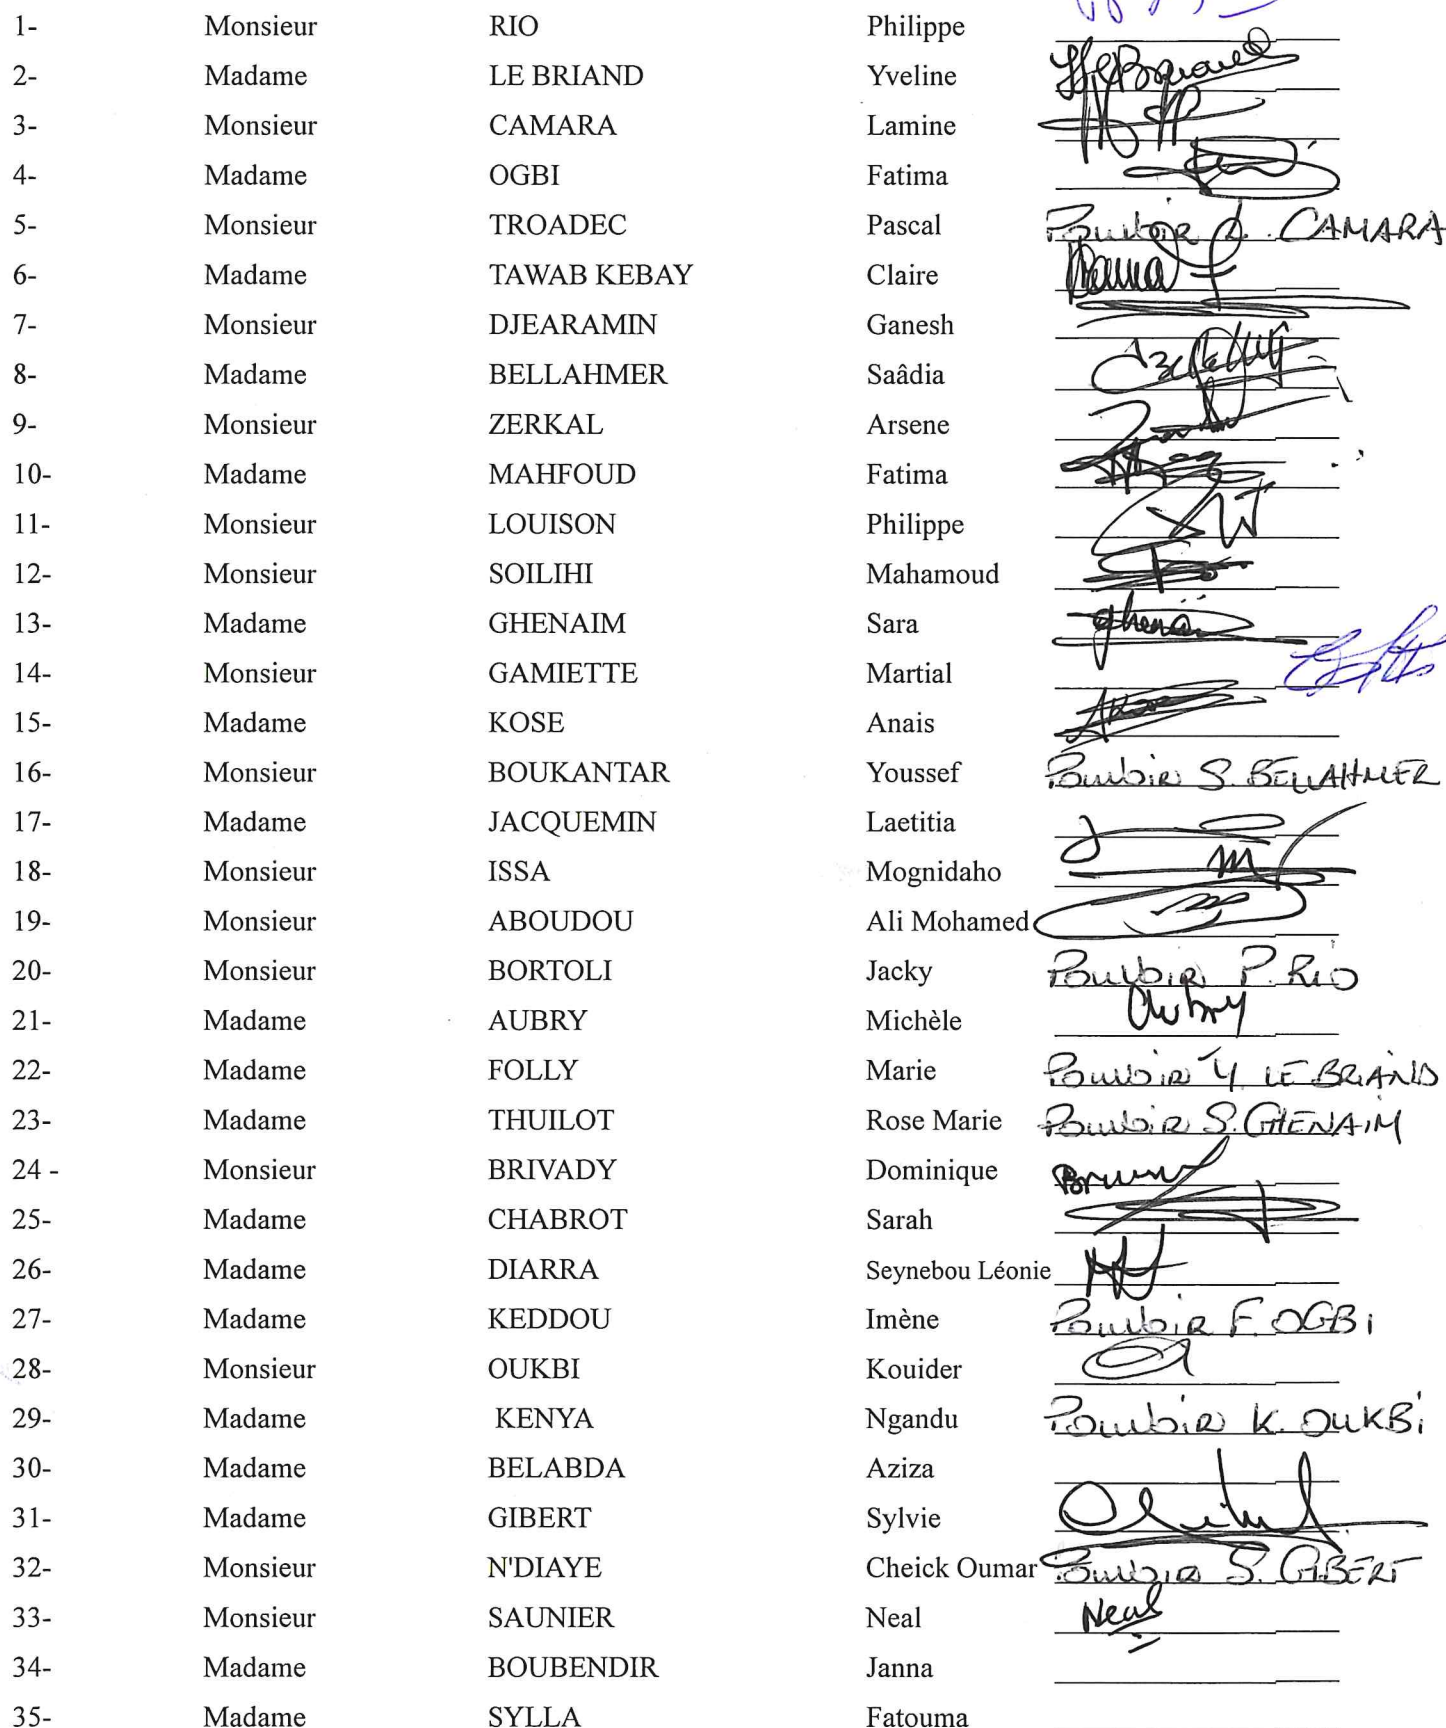 1- Monsieur RIO Philippe
2- Madame LE BRIAND Yveline
3- Monsieur CAMARA Lamine
4- Madame OGBI Fatima
5- Monsieur TROADEC Pascal Pouvoir L. CAMARA
6- Madame TAWAB KEBAY Claire
7- Monsieur DJEARAMIN Ganesh
8- Madame BELLAHMER Saâdia
9- Monsieur ZERKAL Arsene
10- Madame MAHFOUD Fatima
11- Monsieur LOUISON Philippe
12- Monsieur SOILIHI Mahamoud
13- Madame GHENAIM Sara
14- Monsieur GAMIETTE Martial
15- Madame KOSE Anais
16- Monsieur BOUKANTAR Youssef Pouvoir S. BELLAHMER
17- Madame JACQUEMIN Laetitia
18- Monsieur ISSA Mognidaho
19- Monsieur ABOUDOU Ali Mohamed
20- Monsieur BORTOLI Jacky Pouvoir P. RIO
21- Madame AUBRY Michèle Aubry
22- Madame FOLLY Marie Pouvoir Y LE BRIAND
23- Madame THUILOT Rose Marie Pouvoir S. GHENAIM
24 - Monsieur BRIVADY Dominique
25- Madame CHABROT Sarah
26- Madame DIARRA Seynebou Léonie
27- Madame KEDDOU Imène Pouvoir F. OGBi
28- Monsieur OUKBI Kouider
29- Madame KENYA Ngandu Pouvoir K. OUKBi
30- Madame BELABDA Aziza
31- Madame GIBERT Sylvie
32- Monsieur N'DIAYE Cheick Oumar Pouvoir S. GIBERT
33- Monsieur SAUNIER Neal Neal
34- Madame BOUBENDIR Janna
35- Madame SYLLA Fatouma